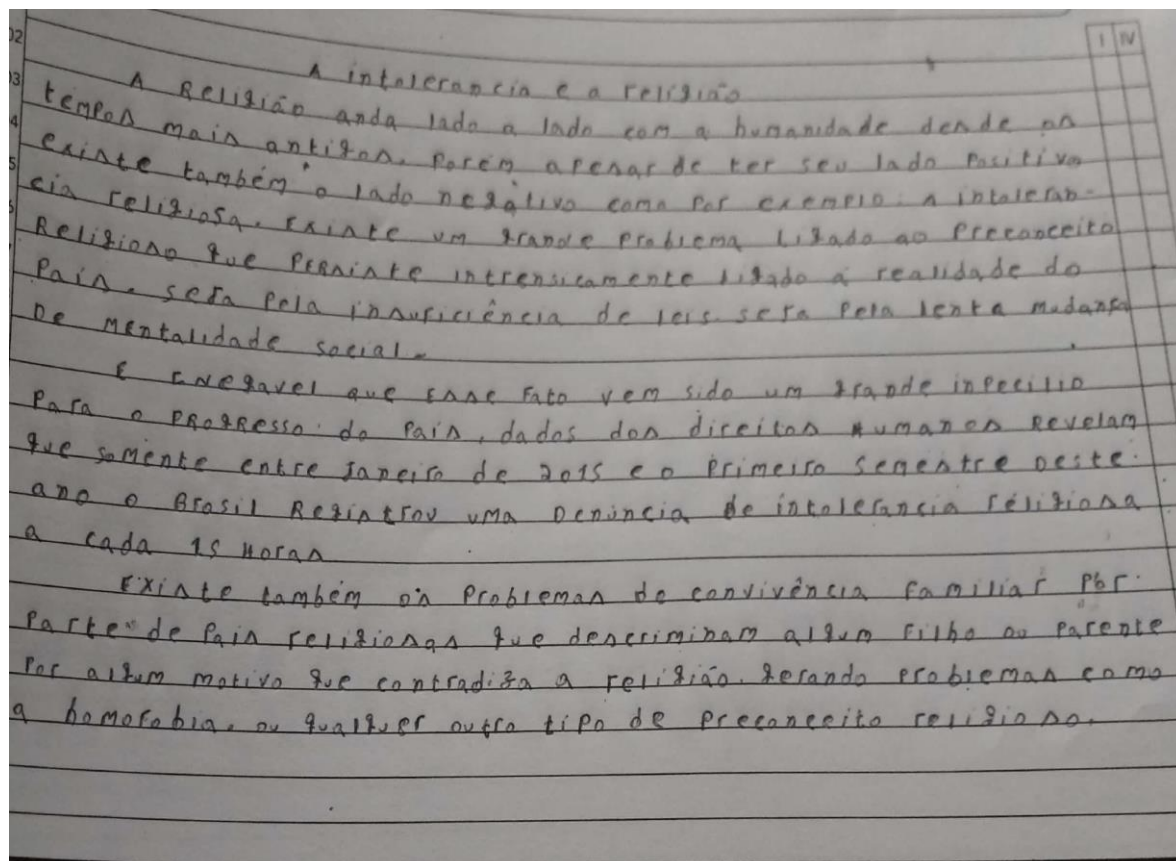 02
I IV
A intolerancia e a religião
03
A Religião anda lado a lado com a humanidade desde os
4
tempos mais antigos. Porém apesar de ter seu lado Positivo
5
existe também o lado negativo como por exemplo: A intoleran-
cia religiosa. Existe um grande problema Ligado ao Preconceito
Religioso que Persiste intrensicamente ligado a realidade do
País. seja pela insuficiência de leis. seja Pela lenta mudança
De mentalidade social.
E Enegavel que Esse Fato vem sido um grande inpecilio
Para o PROgResso do País, dados dos direitos Humanos Revelam
que somente entre Janeiro de 2015 e o Primeiro semestre Deste
ano o Brasil Registrou uma Denúncia de intolerancia religiosa
a cada 15 Horas
Existe também os Problemas de convivência familiar Por
Parte de Pais religiosas que descriminam algum Filho ou Parente
Por algum motivo que contradiga a religião. gerando problemas como
a homofobia. ou qualquer outro tipo de preconceito religioso.